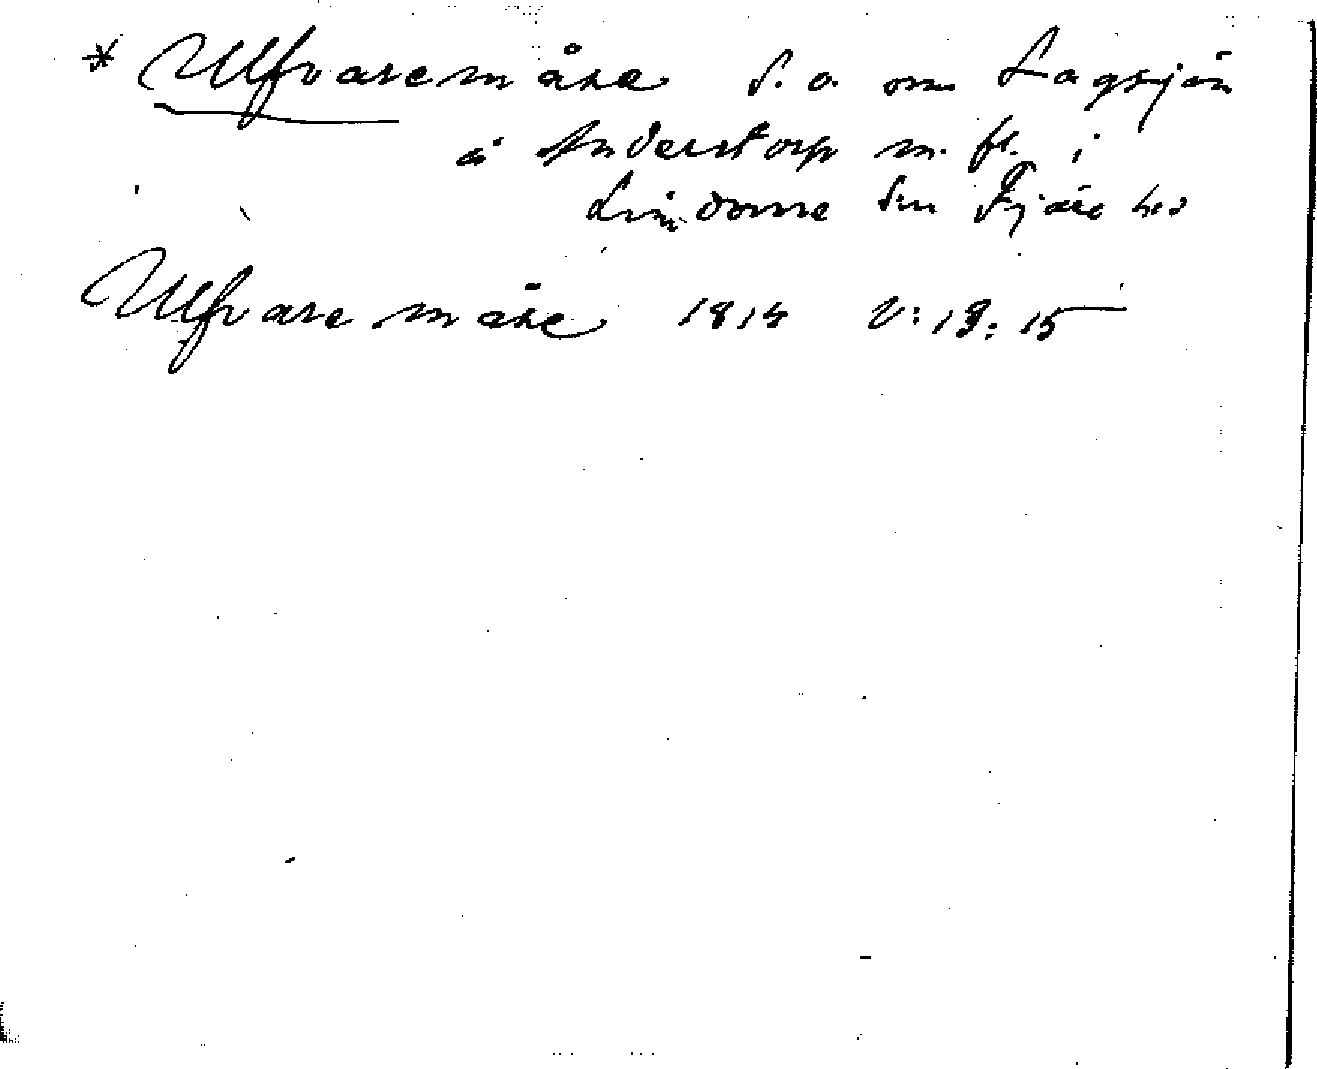 * Ulfvaremåse S. o. om Lagsjön
å Anderstorp m. fl. i
Lindome sn Fjäre hd
Ulfvare måse 1814 V: 19: 15